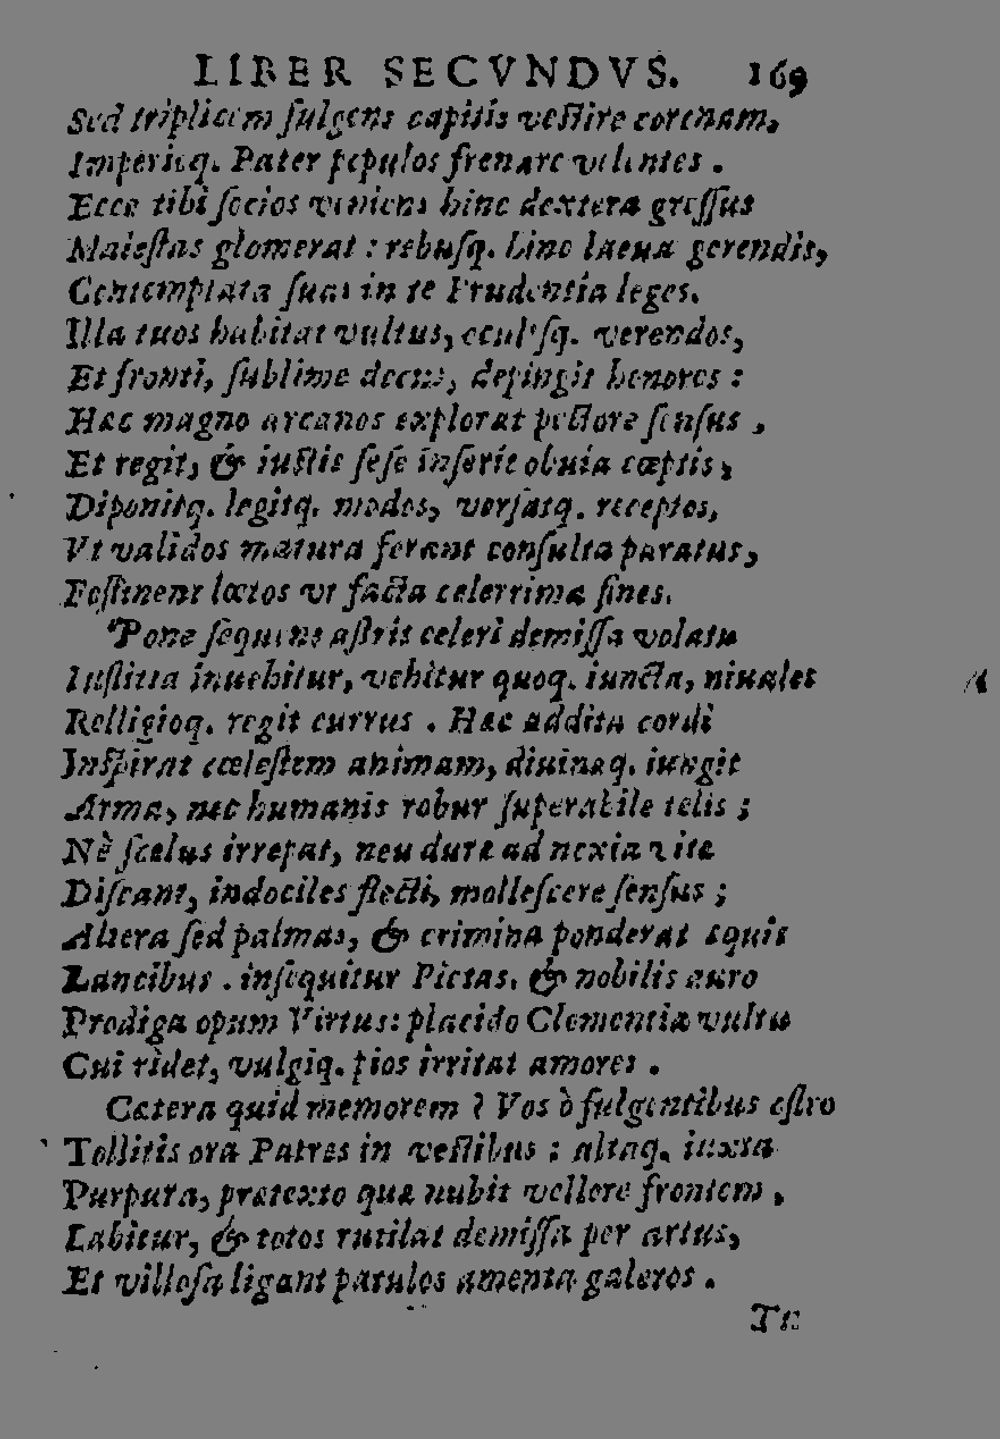 LIBER SECVNDVS. 169
Sed triplicem fulgens capitis vestire coronam,
Imperiiq. Pater populos frenare volentes.
Ecce tibi socios veniens hinc dextera gressus
Maiestas glomerat: rebusq. hinc laeua gerendis,
Contemplata suas in te Prudentia leges.
Illa tuos habitat vultus, oculosq. verendos,
Et fronti, sublime decus, depingit honores:
Hæc magno arcanos explorat pectore sensus,
Et regit, & iustis sese inserit obuia cœptis,
Diponitq. legitq. modos, versatq. receptos,
Vt validos matura ferant consulta paratus,
Festinent lœtos vt facta celerrima fines.
Pone sequens astris celeri demissa volatu
Iustitia inuehitur, vehitur quoq. iuncta, niuales
Relligioq. regit currus. Hæc addita cordi
Inspirat cœlestem animam, diuinaq. iungit
Arma, nec humanis robur superabile telis;
Nè scelus irrepat, neu duræ ad noxia vitæ
Discant, indociles flecti, mollescere sensus;
Altera sed palmas, & crimina ponderat æquis
Lancibus. insequitur Pietas, & nobilis auro
Prodiga opum Virtus: placido Clementia vultu
Cui rìdet, vulgiq. pios irritat amores.
Cætera quid memorem? Vos ò fulgentibus ostro
Tollitis ora Patres in vestibus: altaq. iuxta
Purpura, prætexto quæ nubit vellere frontem,
Labitur, & totos rutilat demissa per artus,
Et villosa ligant patulos amenta galeros.
Tu